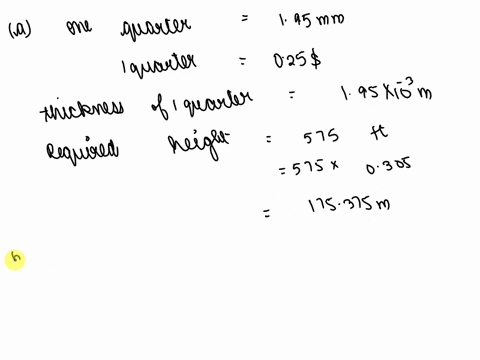 (a) one quarter = 1.95 mm
1 quarter = 0.25 $
thickness of 1 quarter = 1.95 × 10⁻³ m
Required height = 575 ft
= 575 × 0.305
= 175.375 m